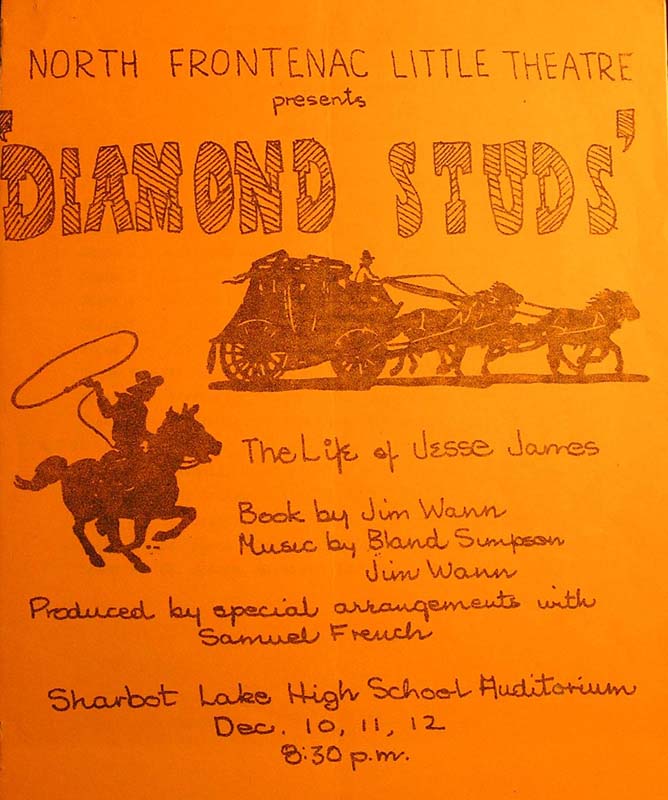 NORTH FRONTENAC LITTLE THEATRE
presents
'DIAMOND STUDS'
The Life of Jesse James
Book by Jim Wann
Music by Bland Simpson
Jim Wann
Produced by special arrangements with
Samuel French
Sharbot Lake High School Auditorium
Dec. 10, 11, 12
8:30 p.m.